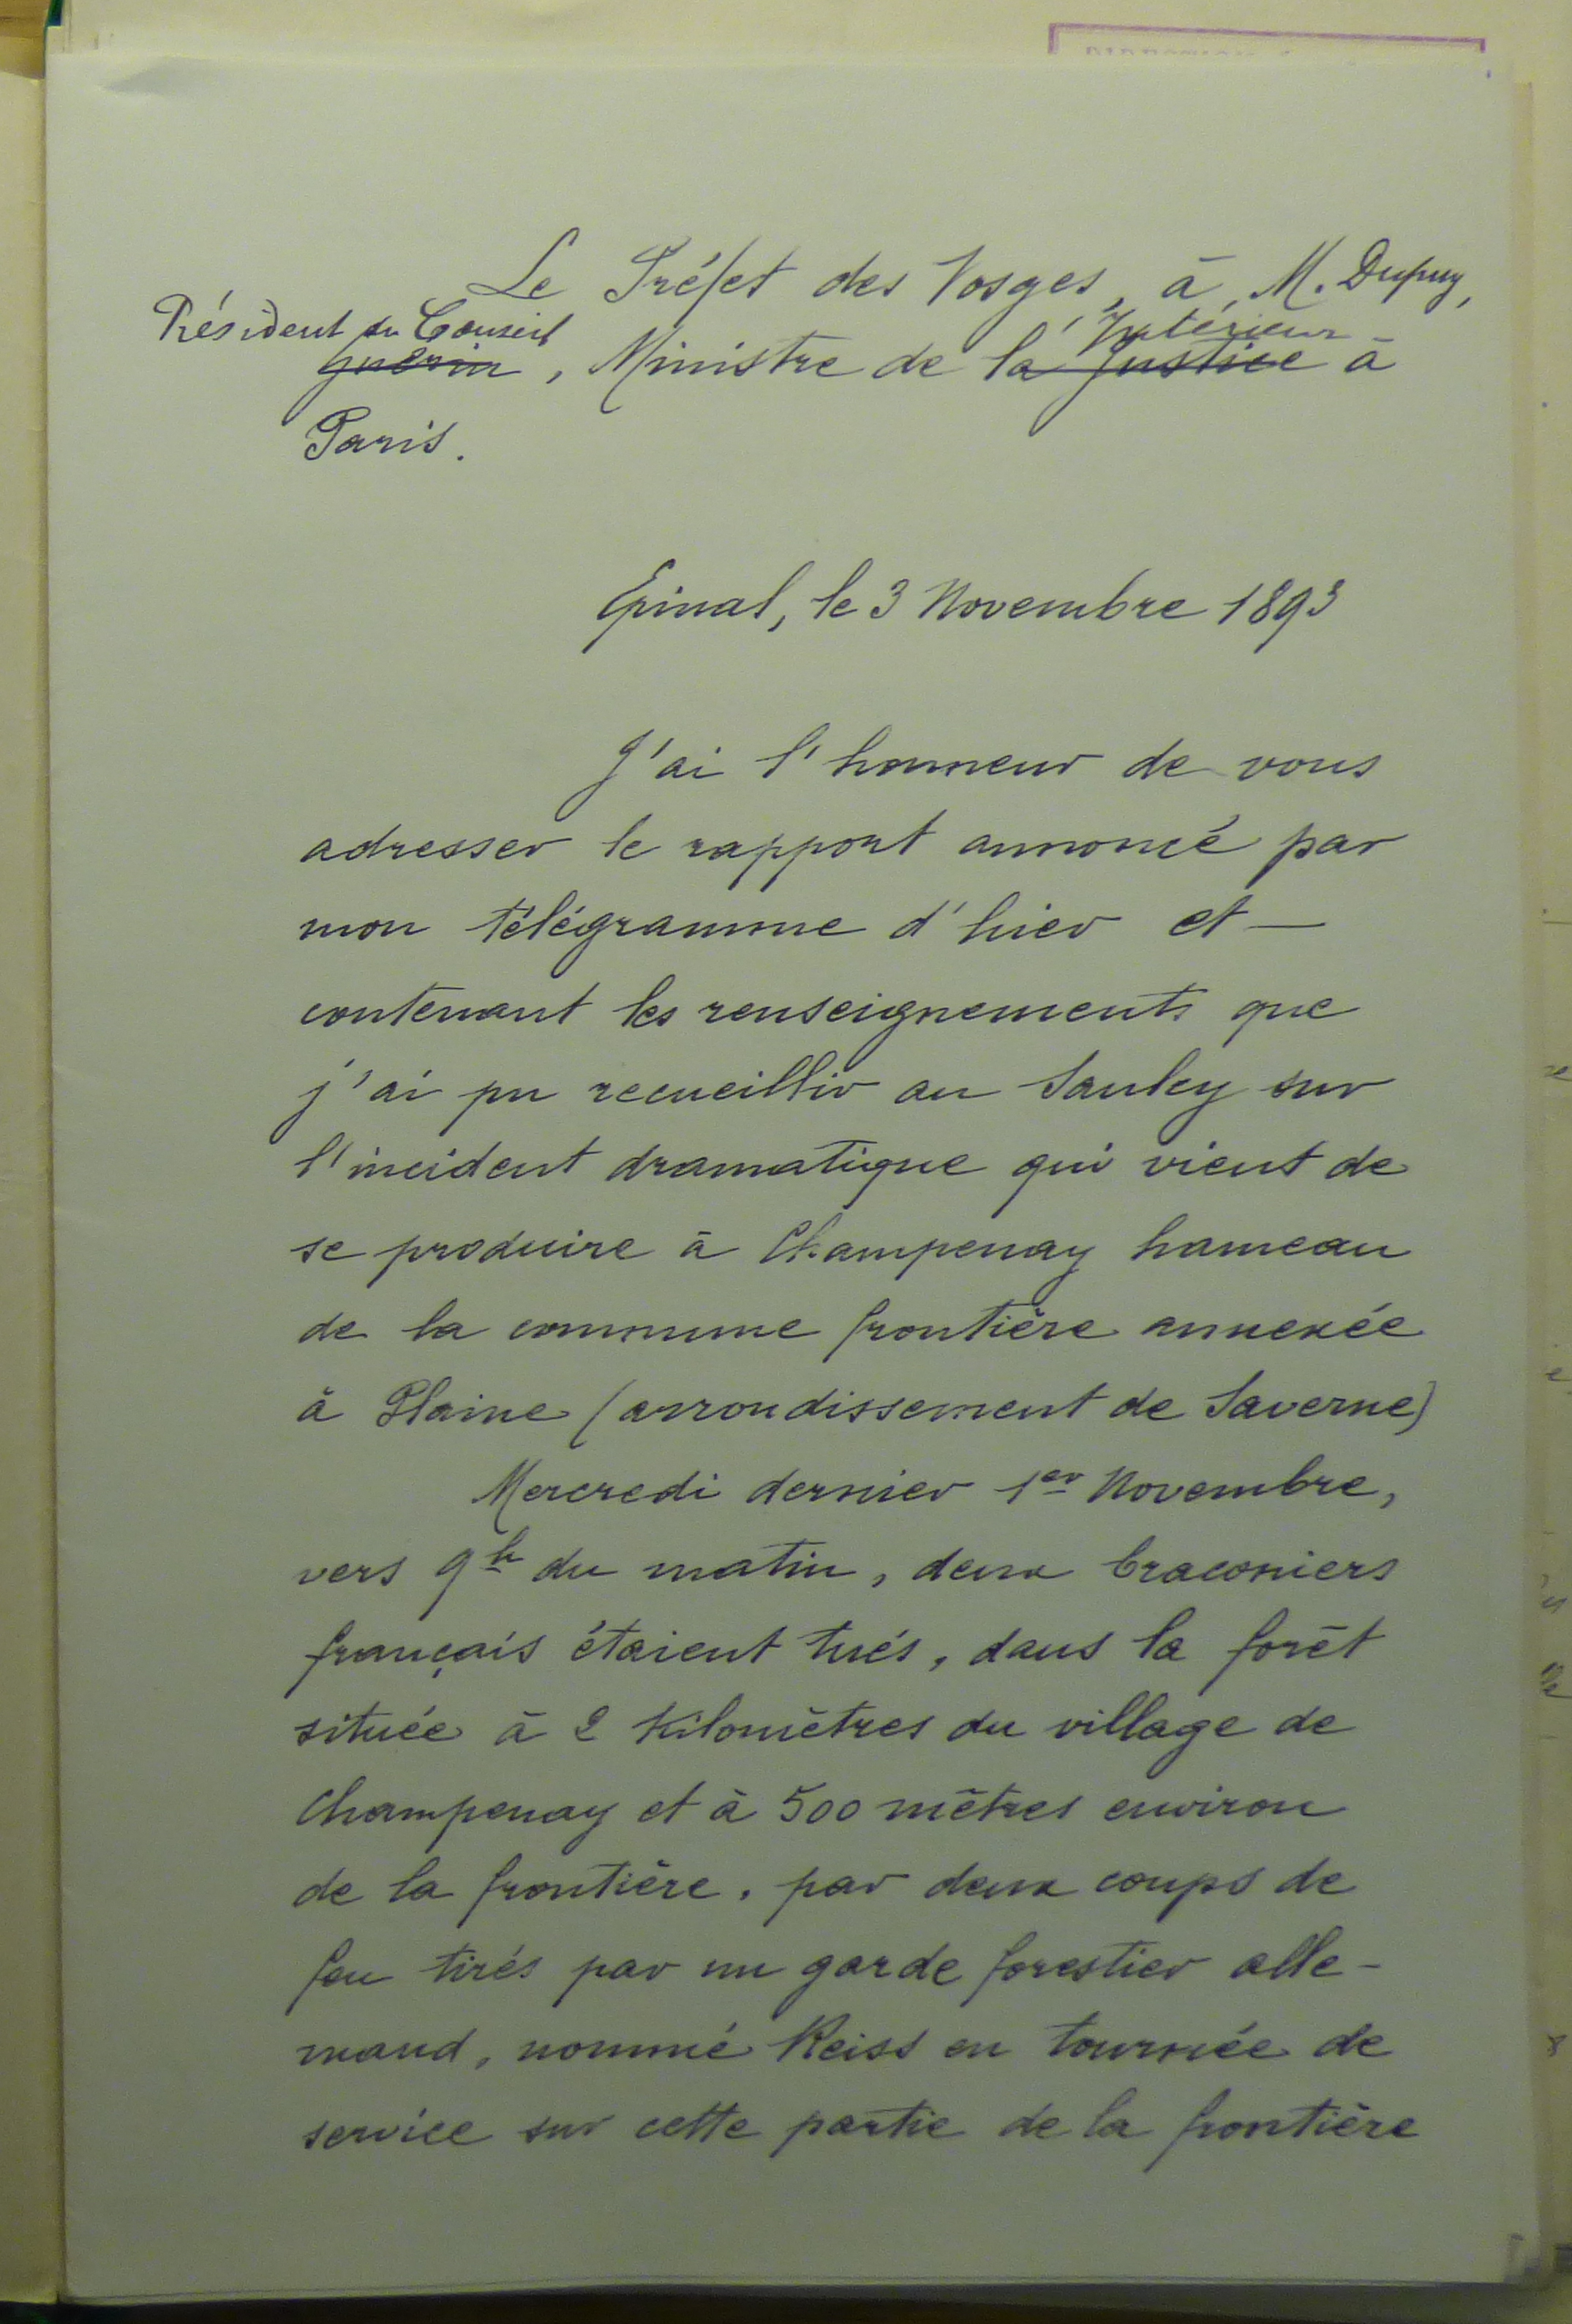 Le Préfet des Vosges, à M. Dupuy,
Président du Conseil
Guérin, Ministre de la Justice à
l'Intérieur
Paris.
Epinal, le 3 Novembre 1893
J'ai l'honneur de vous
adresser le rapport annoncé par
mon télégramme d'hier et —
contenant les renseignements que
j'ai pu recueillir au Saulcy sur
l'incident dramatique qui vient de
se produire à Champenay hameau
de la commune frontière annexée
à Plaine (arrondissement de Saverne)
Mercredi dernier 1er Novembre,
vers 9h du matin, deux braconiers
français étaient tués, dans la forêt
située à 2 Kilomètres du village de
Champenay et à 500 mètres environ
de la frontière, par deux coups de
feu tirés par un garde forestier alle-
mand, nommé Reiss en tournée de
service sur cette partie de la frontière